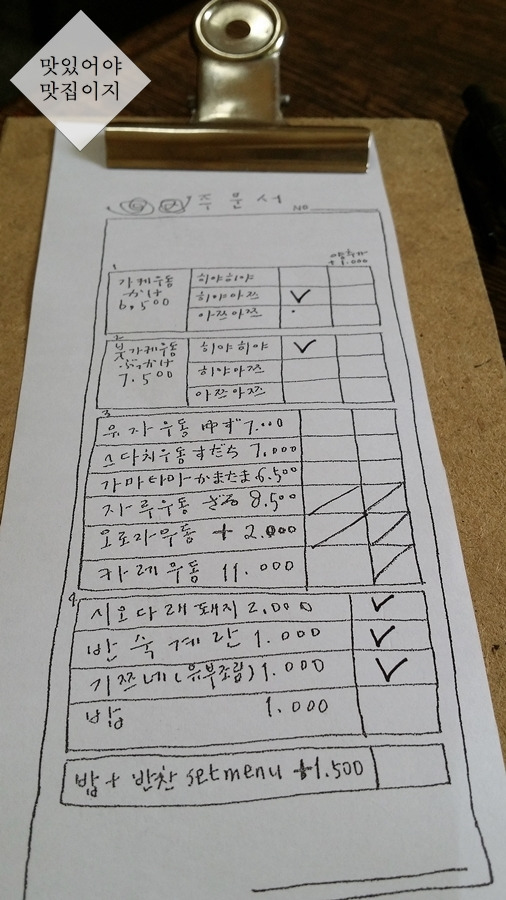 맛있어야
맛집이지
주문서
NO
양추가
+1.000
1
가케우동
かけ
6,500
히야히야
히야아쯔
아쯔아쯔
2
붓가케우동
ぶっかけ
7.500
히야히야
히야아쯔
아쯔아쯔
3
유자우동 ゆず 7.000
스다치우동 すだち 7,000
가마타마 かまたま 6.500
자루우동 ざる 8,500
오로시우동 + 2.000
카레우동 11.000
4
시오다래돼지 2,000
반숙계란 1.000
기쯔네(유부조림) 1.000
밥 1.000
밥 + 반찬 set menu +1.500